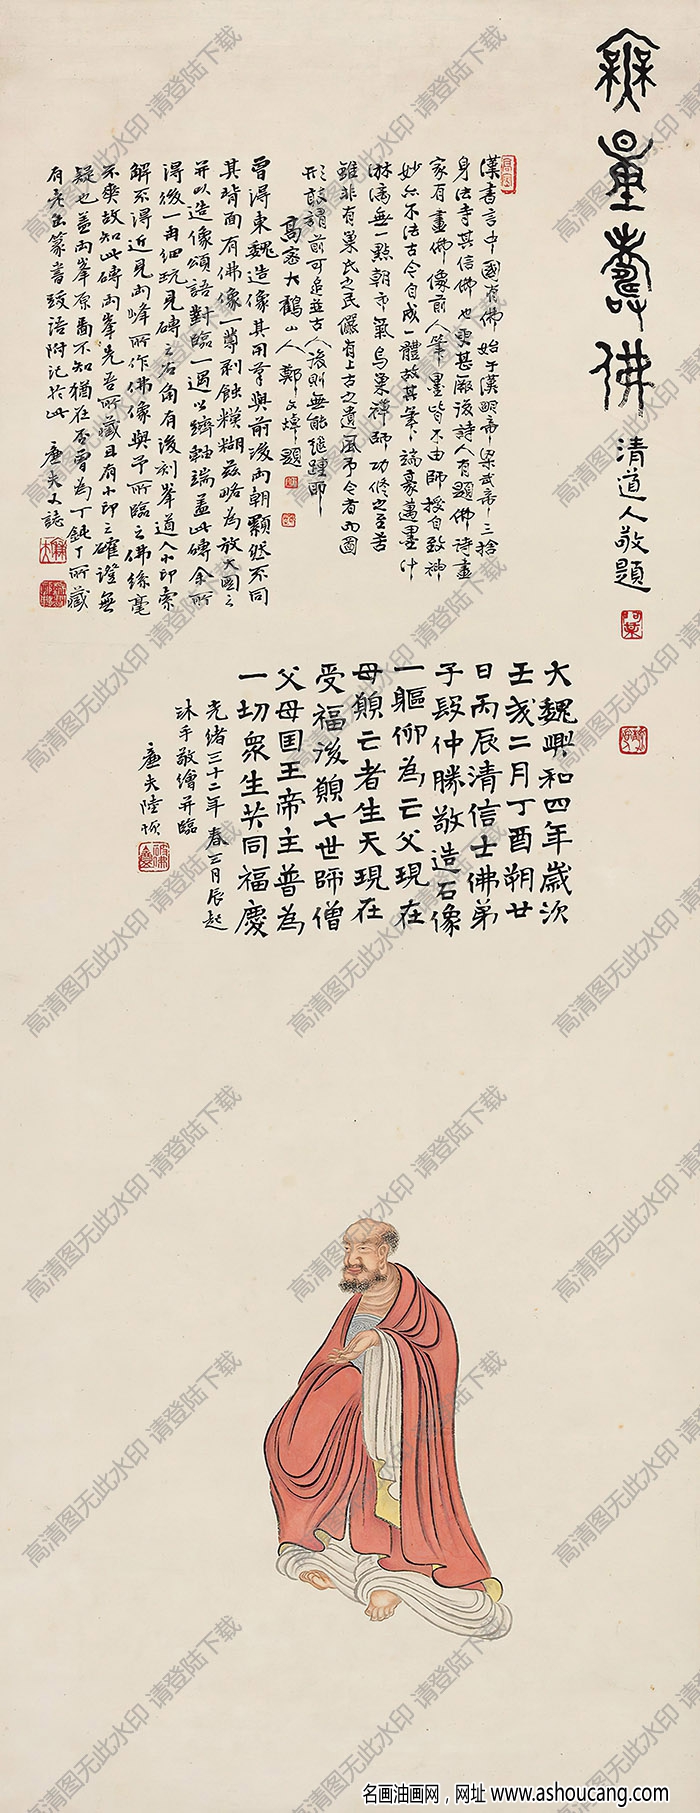 無量壽佛
清道人敬題
漢書言中國有佛始于漢明帝梁武帝三捨
身法寺其信佛也更甚厥後詩人有題佛詩畫
家有畫佛像前人筆墨皆不由師授自致神
妙
不法古今自成一體故其筆筆端豪邁墨汁
淋漓無一點朝市氣烏巢禪師功修之至苦
雖非有巢氏之民儼有上古之遺風予今者而圖
形敢謂前可追並古人後則無能繼踵耶
高密大鶴山人鄭文焯題
曾得東魏造像其用筆與前後兩朝顯然不同
其背面有佛像一尊剥蝕糢糊茲略為放大圖之
并以造像頌語對臨一過以繢軸端蓋此磚余所
得後一再細玩見磚之右角有後刻峯道人小印索
解不得近見兩峰所作佛像與予所臨之佛絲毫
不爽故知此磚兩峯先吾所藏且有小印之確證無
疑也蓋兩峯原圖不知猶在否曾為丁鈍丁所藏
有老缶篆書跋語附記於此 廉夫又誌
大魏興和四年歲次
壬戌二月丁酉朔廿
日丙辰清信士佛弟
子段仲勝敬造石像
一軀仰為亡父現在
母願亡者生天現在
受福後願七世師僧
父母国王帝主普為
一切衆生共同福慶
光緒三十二年春三月辰起
沐手敬繪并臨
廉夫陸恢
高清图无此水印 请登陆下载
名画油画网，网址 www.ashoucang.com